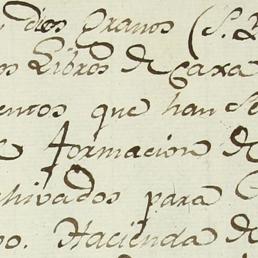 dies Granos (S. R
os Libros de Caxa
entos que han Se
formacion de
chivados para
po. Hacienda de